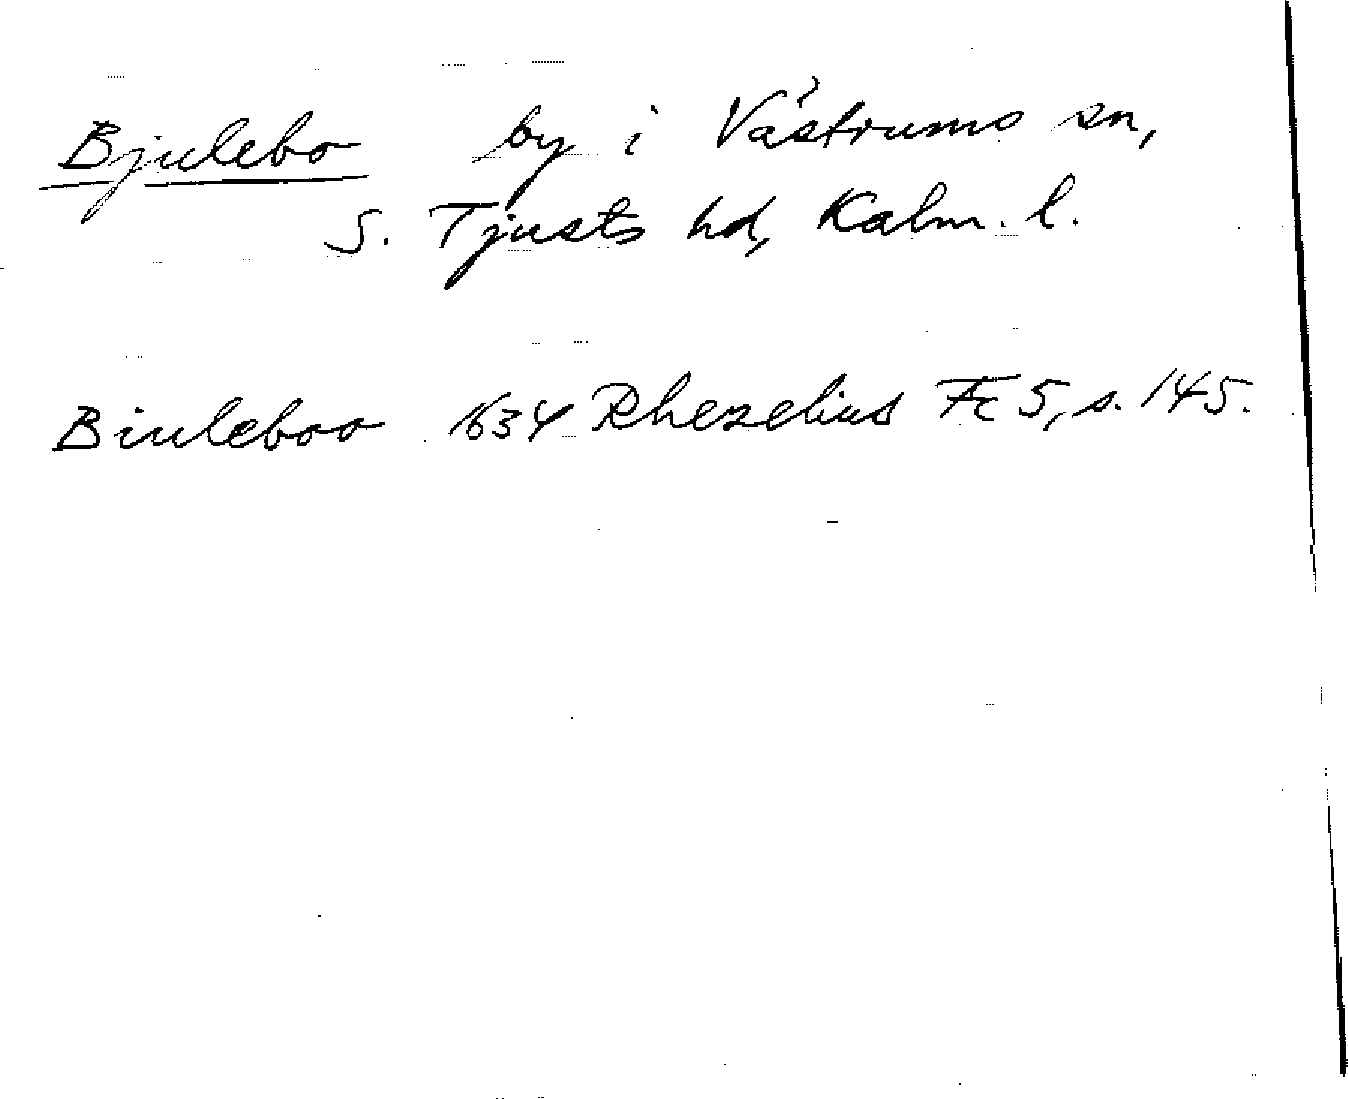 Bjulebo by i Västrums sn,
S. Tjusts hd, Kalm. l.
Biuleboo 1634 Rhezelius Fc 5, s. 145.